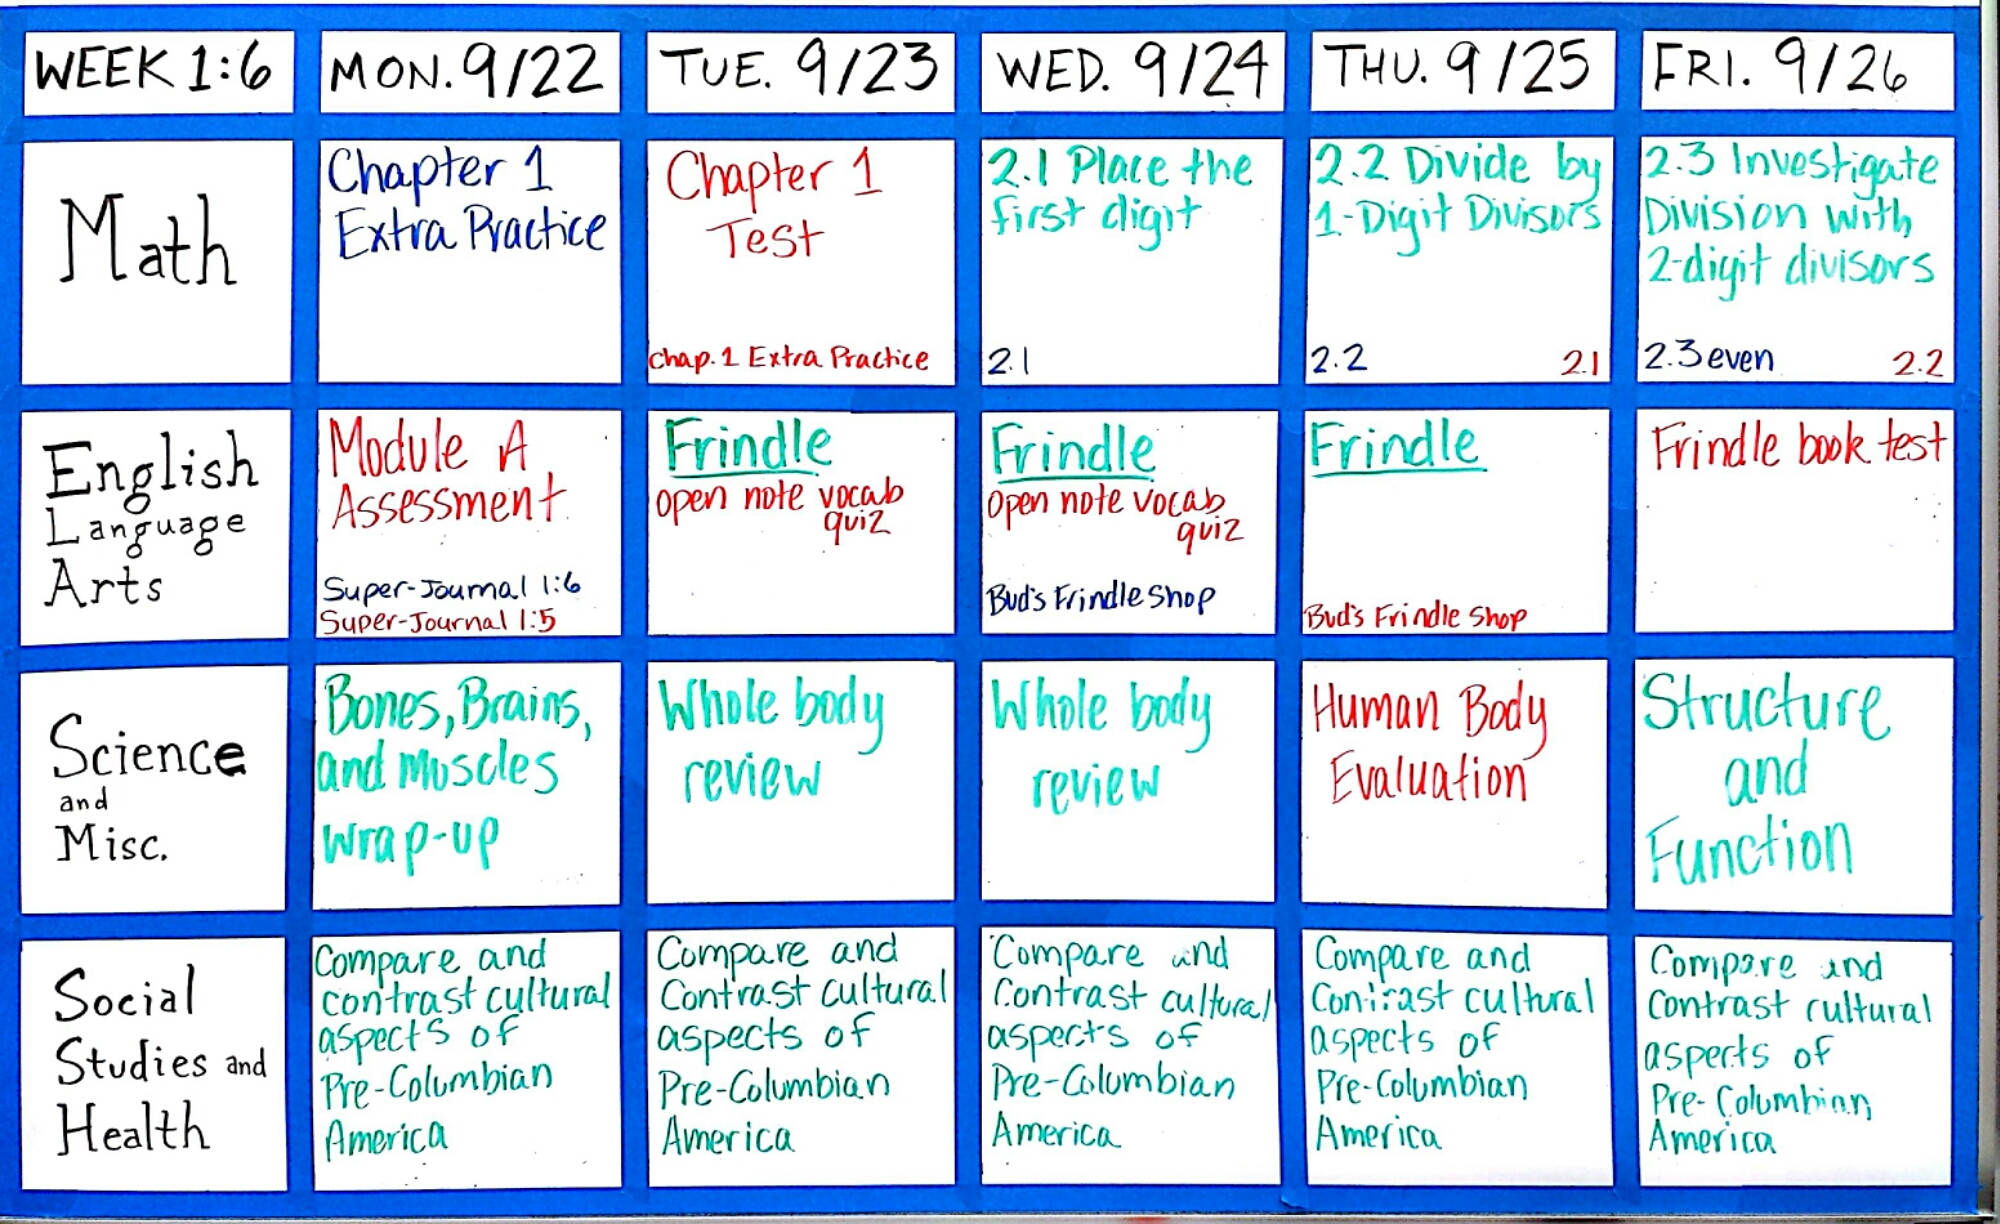 WEEK 1:6
MON. 9/22
TUE. 9/23
WED. 9/24
THU. 9/25
FRI. 9/26
Math
Chapter 1
Extra Practice
Chapter 1
Test
chap. 1 Extra Practice
2.1 Place the
first digit
2.1
2.2 Divide by
1-Digit Divisors
2.2
2.1
2.3 Investigate
Division with
2-digit divisors
2.3 even
2.2
English
Language
Arts
Module A
Assessment
Super-Journal 1:6
Super-Journal 1:5
Frindle
open note vocab
quiz
Frindle
open note vocab
quiz
Bud's Frindle Shop
Frindle
Bud's Frindle Shop
Frindle book test
Science
and
Misc.
Bones, Brains,
and Muscles
wrap-up
Whole body
review
Whole body
review
Human Body
Evaluation
Structure
and
Function
Social
Studies and
Health
Compare and
contrast cultural
aspects of
Pre-Columbian
America
Compare and
Contrast cultural
aspects of
Pre-Columbian
America
Compare and
Contrast cultural
aspects of
Pre-Columbian
America
Compare and
Contrast cultural
aspects of
Pre-Columbian
America
Compare and
Contrast cultural
aspects of
Pre-Columbian
America